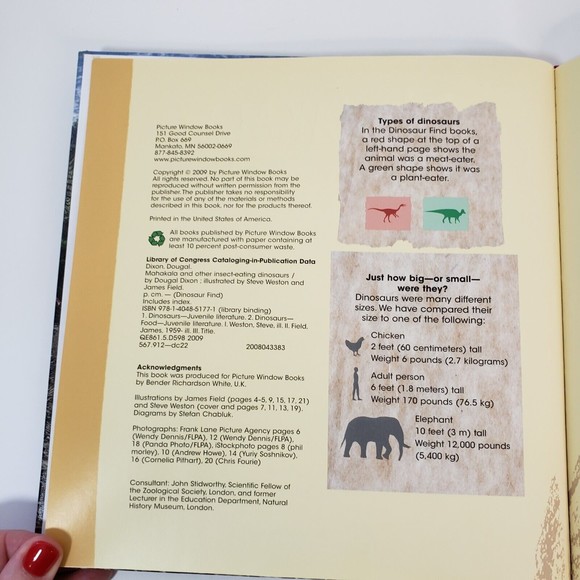 Picture Window Books
151 Good Counsel Drive
P.O. Box 669
Mankato, MN 56002-0669
877-845-8392
www.picturewindowbooks.com
Copyright © 2009 by Picture Window Books
All rights reserved. No part of this book may be
reproduced without written permission from the
publisher. The publisher takes no responsibility
for the use of any of the materials or methods
described in this book, nor for the products thereof.
Printed in the United States of America.
All books published by Picture Window Books
are manufactured with paper containing at
least 10 percent post-consumer waste.
Library of Congress Cataloging-in-Publication Data
Dixon, Dougal.
Mahakala and other insect-eating dinosaurs /
by Dougal Dixon ; illustrated by Steve Weston and
James Field.
p. cm. — (Dinosaur Find)
Includes index.
ISBN 978-1-4048-5177-1 (library binding)
1. Dinosaurs—Juvenile literature. 2. Dinosaurs—
Food—Juvenile literature. I. Weston, Steve, ill. II. Field,
James, 1959- ill. III. Title.
QE861.5.D598 2009
567.912—dc22 2008043383
Acknowledgments
This book was produced for Picture Window Books
by Bender Richardson White, U.K.
Illustrations by James Field (pages 4-5, 9, 15, 17, 21)
and Steve Weston (cover and pages 7, 11, 13, 19).
Diagrams by Stefan Chabluk.
Photographs: Frank Lane Picture Agency pages 6
(Wendy Dennis/FLPA), 12 (Wendy Dennis/FLPA),
18 (Panda Photo/FLPA), iStockphoto pages 8 (phil
morley), 10 (Andrew Howe), 14 (Yuriy Soshnikov),
16 (Cornelia Pithart), 20 (Chris Fourie)
Consultant: John Stidworthy, Scientific Fellow of
the Zoological Society, London, and former
Lecturer in the Education Department, Natural
History Museum, London.
Types of dinosaurs
In the Dinosaur Find books,
a red shape at the top of a
left-hand page shows the
animal was a meat-eater.
A green shape shows it was
a plant-eater.
Just how big—or small—
were they?
Dinosaurs were many different
sizes. We have compared their
size to one of the following:
Chicken
2 feet (60 centimeters) tall
Weight 6 pounds (2.7 kilograms)
Adult person
6 feet (1.8 meters) tall
Weight 170 pounds (76.5 kg)
Elephant
10 feet (3 m) tall
Weight 12,000 pounds
(5,400 kg)